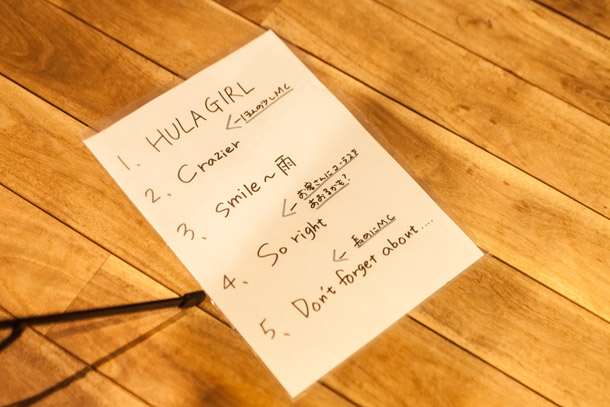 1. HULA GIRL
←ほんの少しMC
2. Crazier
3. Smile～雨
←お客さんにコーラスを
あおるかも?
4. So right
←長めにMC
5. Don't forget about.....